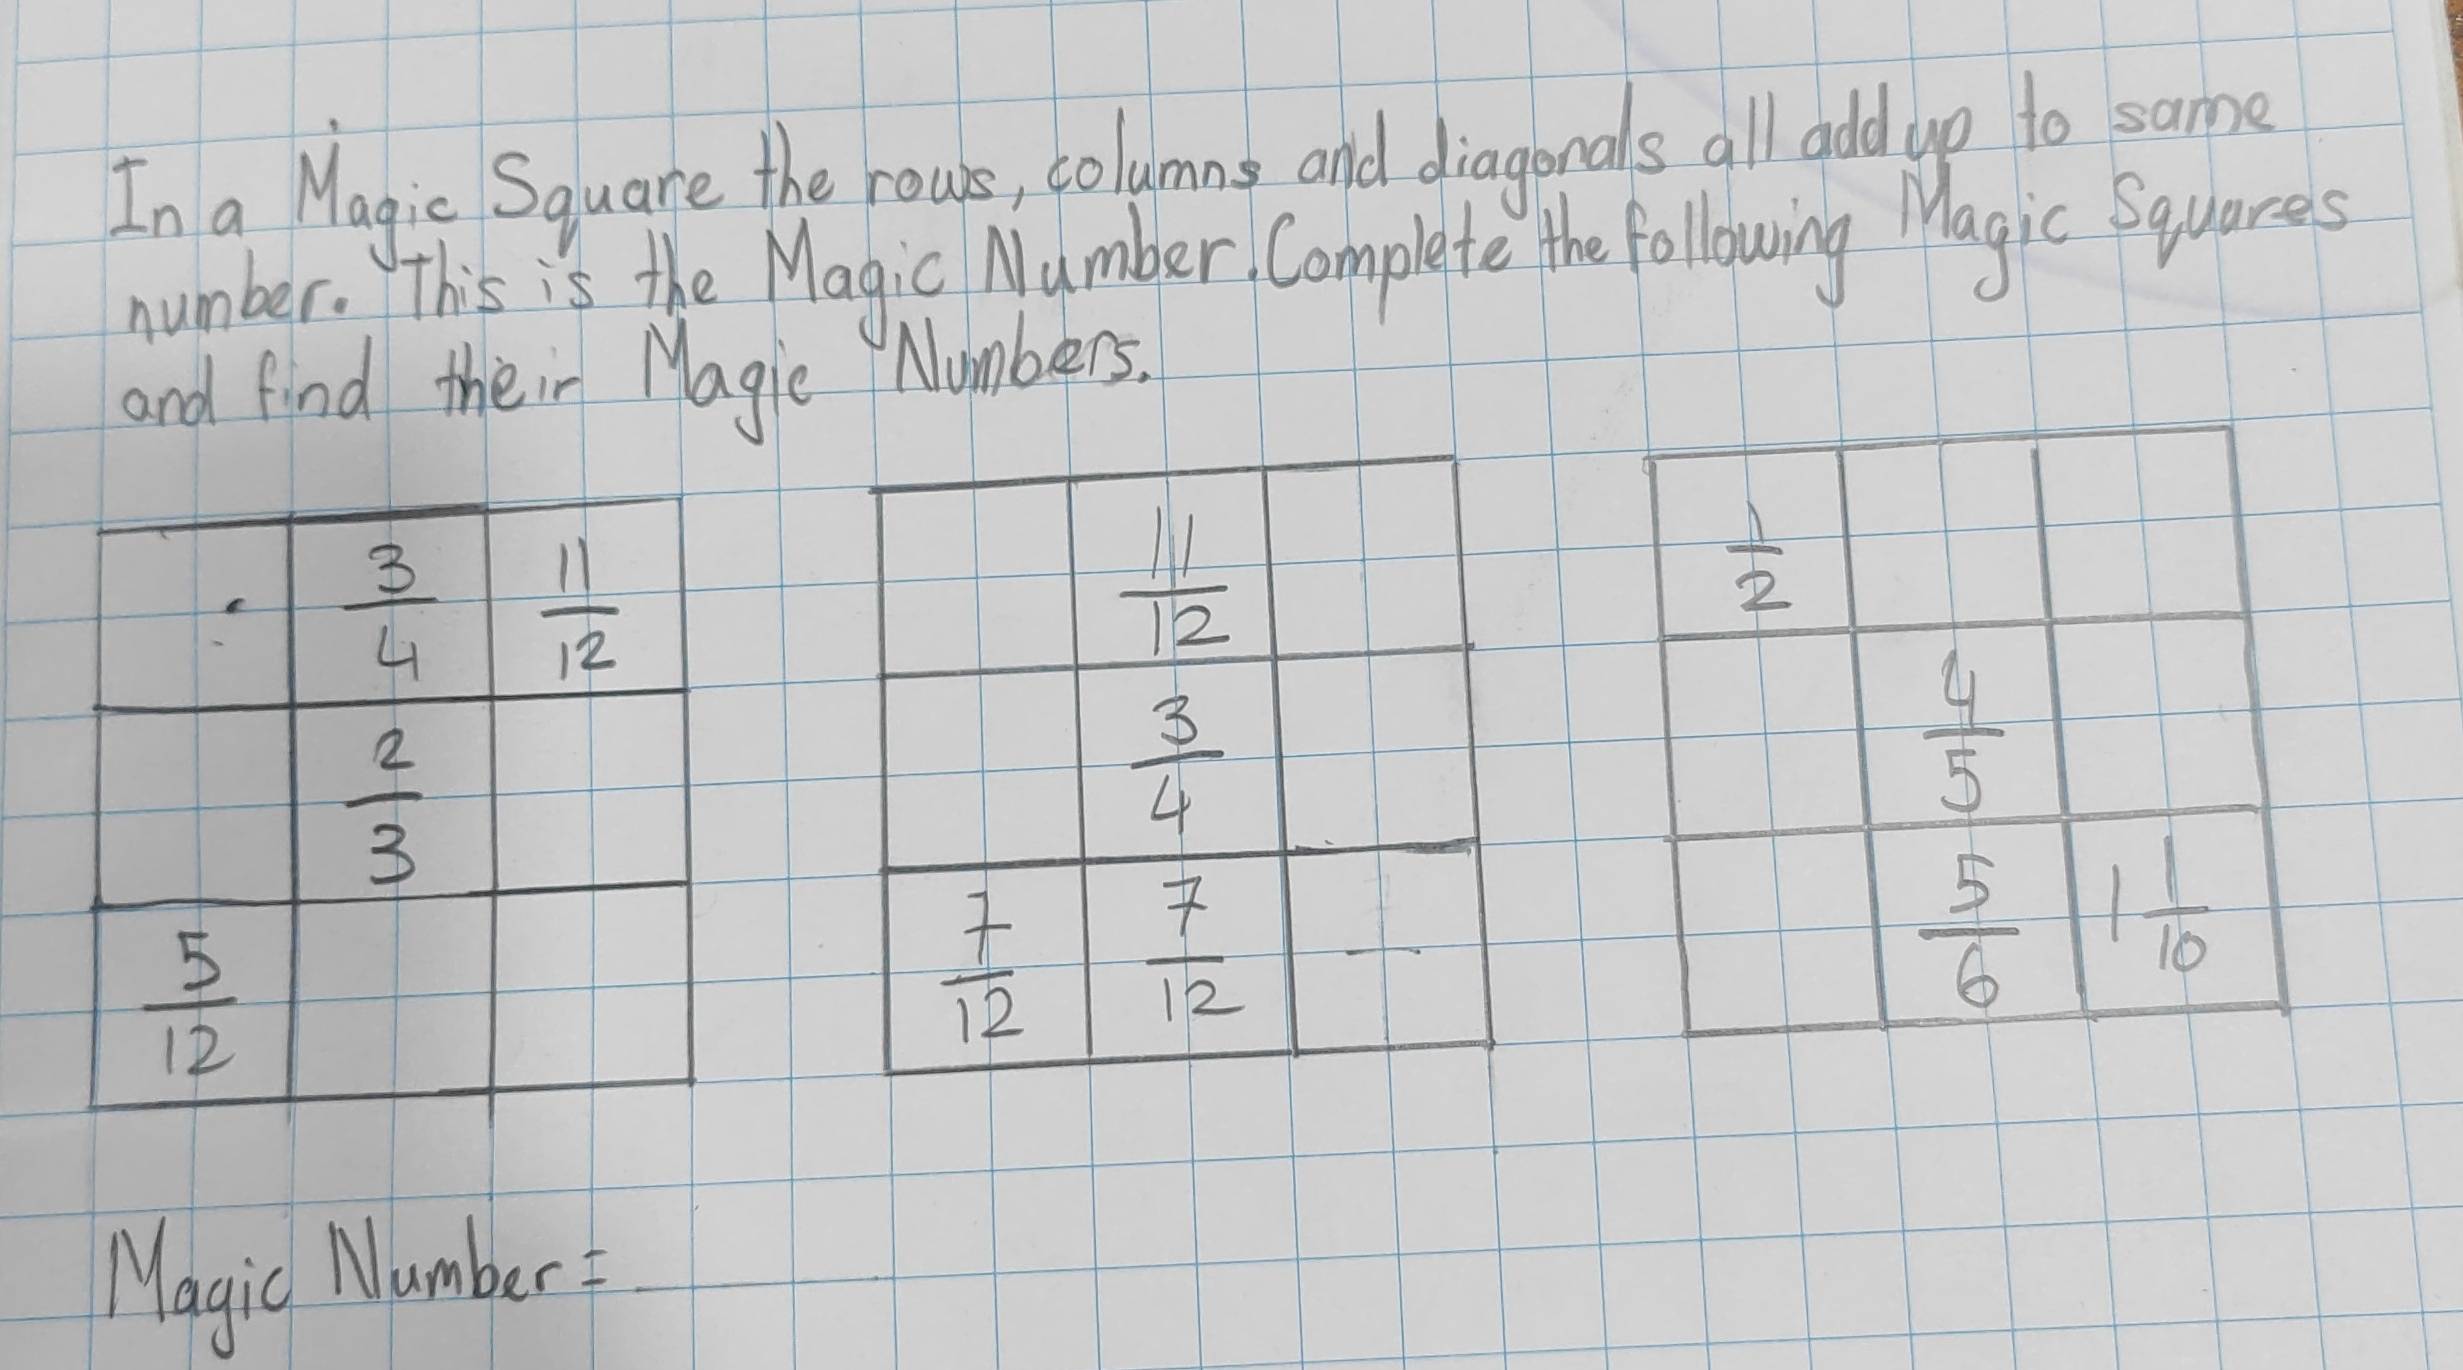 In a Magic Square the rows, columns and diagonals all add up to same
number. This is the Magic Number. Complete the following Magic Squares
and find their Magic Numbers.
3/4 11/12
2/3
5/12
11/12
3/4
7/12 7/12
1/2
4/5
5/6 1 1/10
Magic Number =